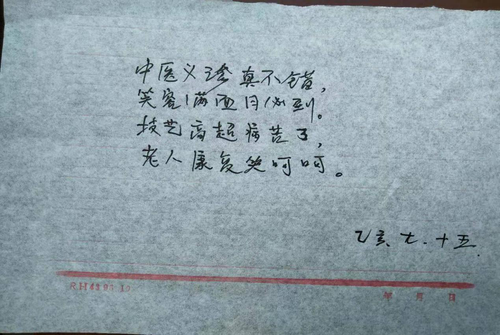 中医义诊真不错，
笑容满面目必到。
技艺高超病苦了，
老人康复笑呵呵。
乙亥.七.十五.
年 月 日